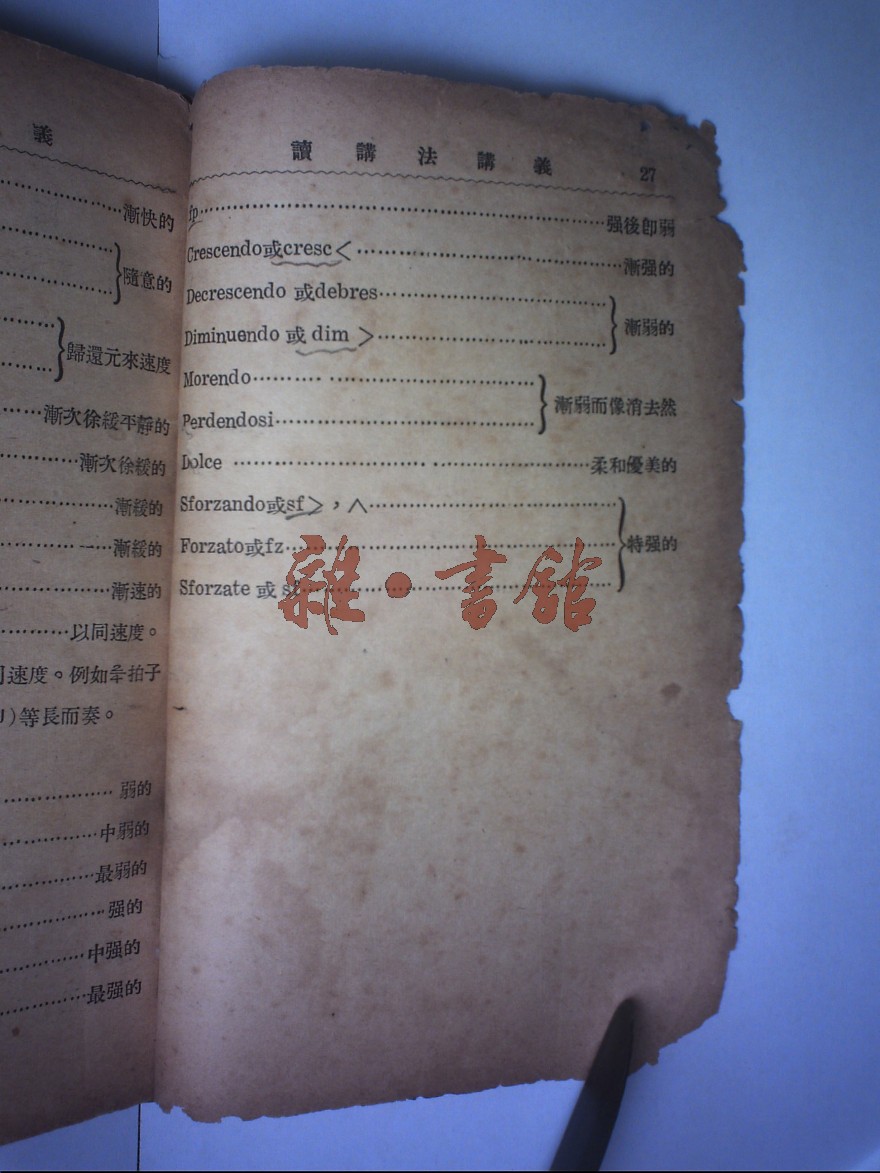 義
漸快的
隨意的
歸還元來速度
漸次徐緩平靜的
漸次徐緩的
漸緩的
漸緩的
漸速的
以同速度。
速度。例如 拍子
)等長而奏。
弱的
中弱的
最弱的
强的
中强的
最强的
讀講法講義 27
fp 强後卽弱
Crescendo或cresc< 漸强的
Decrescendo 或debres
Diminuendo 或 dim > 漸弱的
Morendo
Perdendosi 漸弱而像消去然
Dolce 柔和優美的
Sforzando或sf>，∧
Forzato或fz 特强的
Sforzate 或 sf
雜·書館